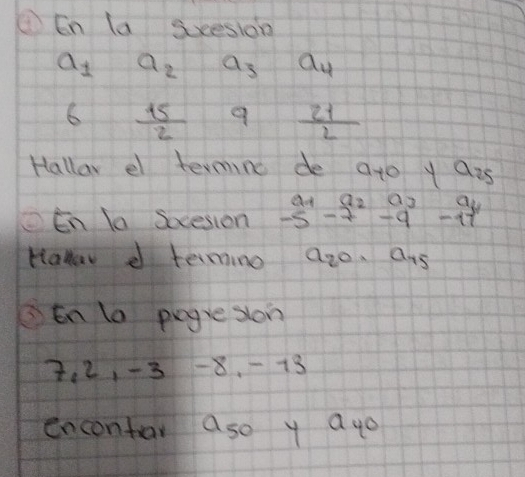 ① En la sucesion
a1 a2 a3 a4
6 15/2 9 21/2
Hallar el termino de a10 y a25
② En la Sucesion a1 a2 a3 a4 -5 -7 -9 -11
Hallar el termino a20. a15
③ En la progresion
7, 2, -3 -8, -13
encontrar a50 y a40